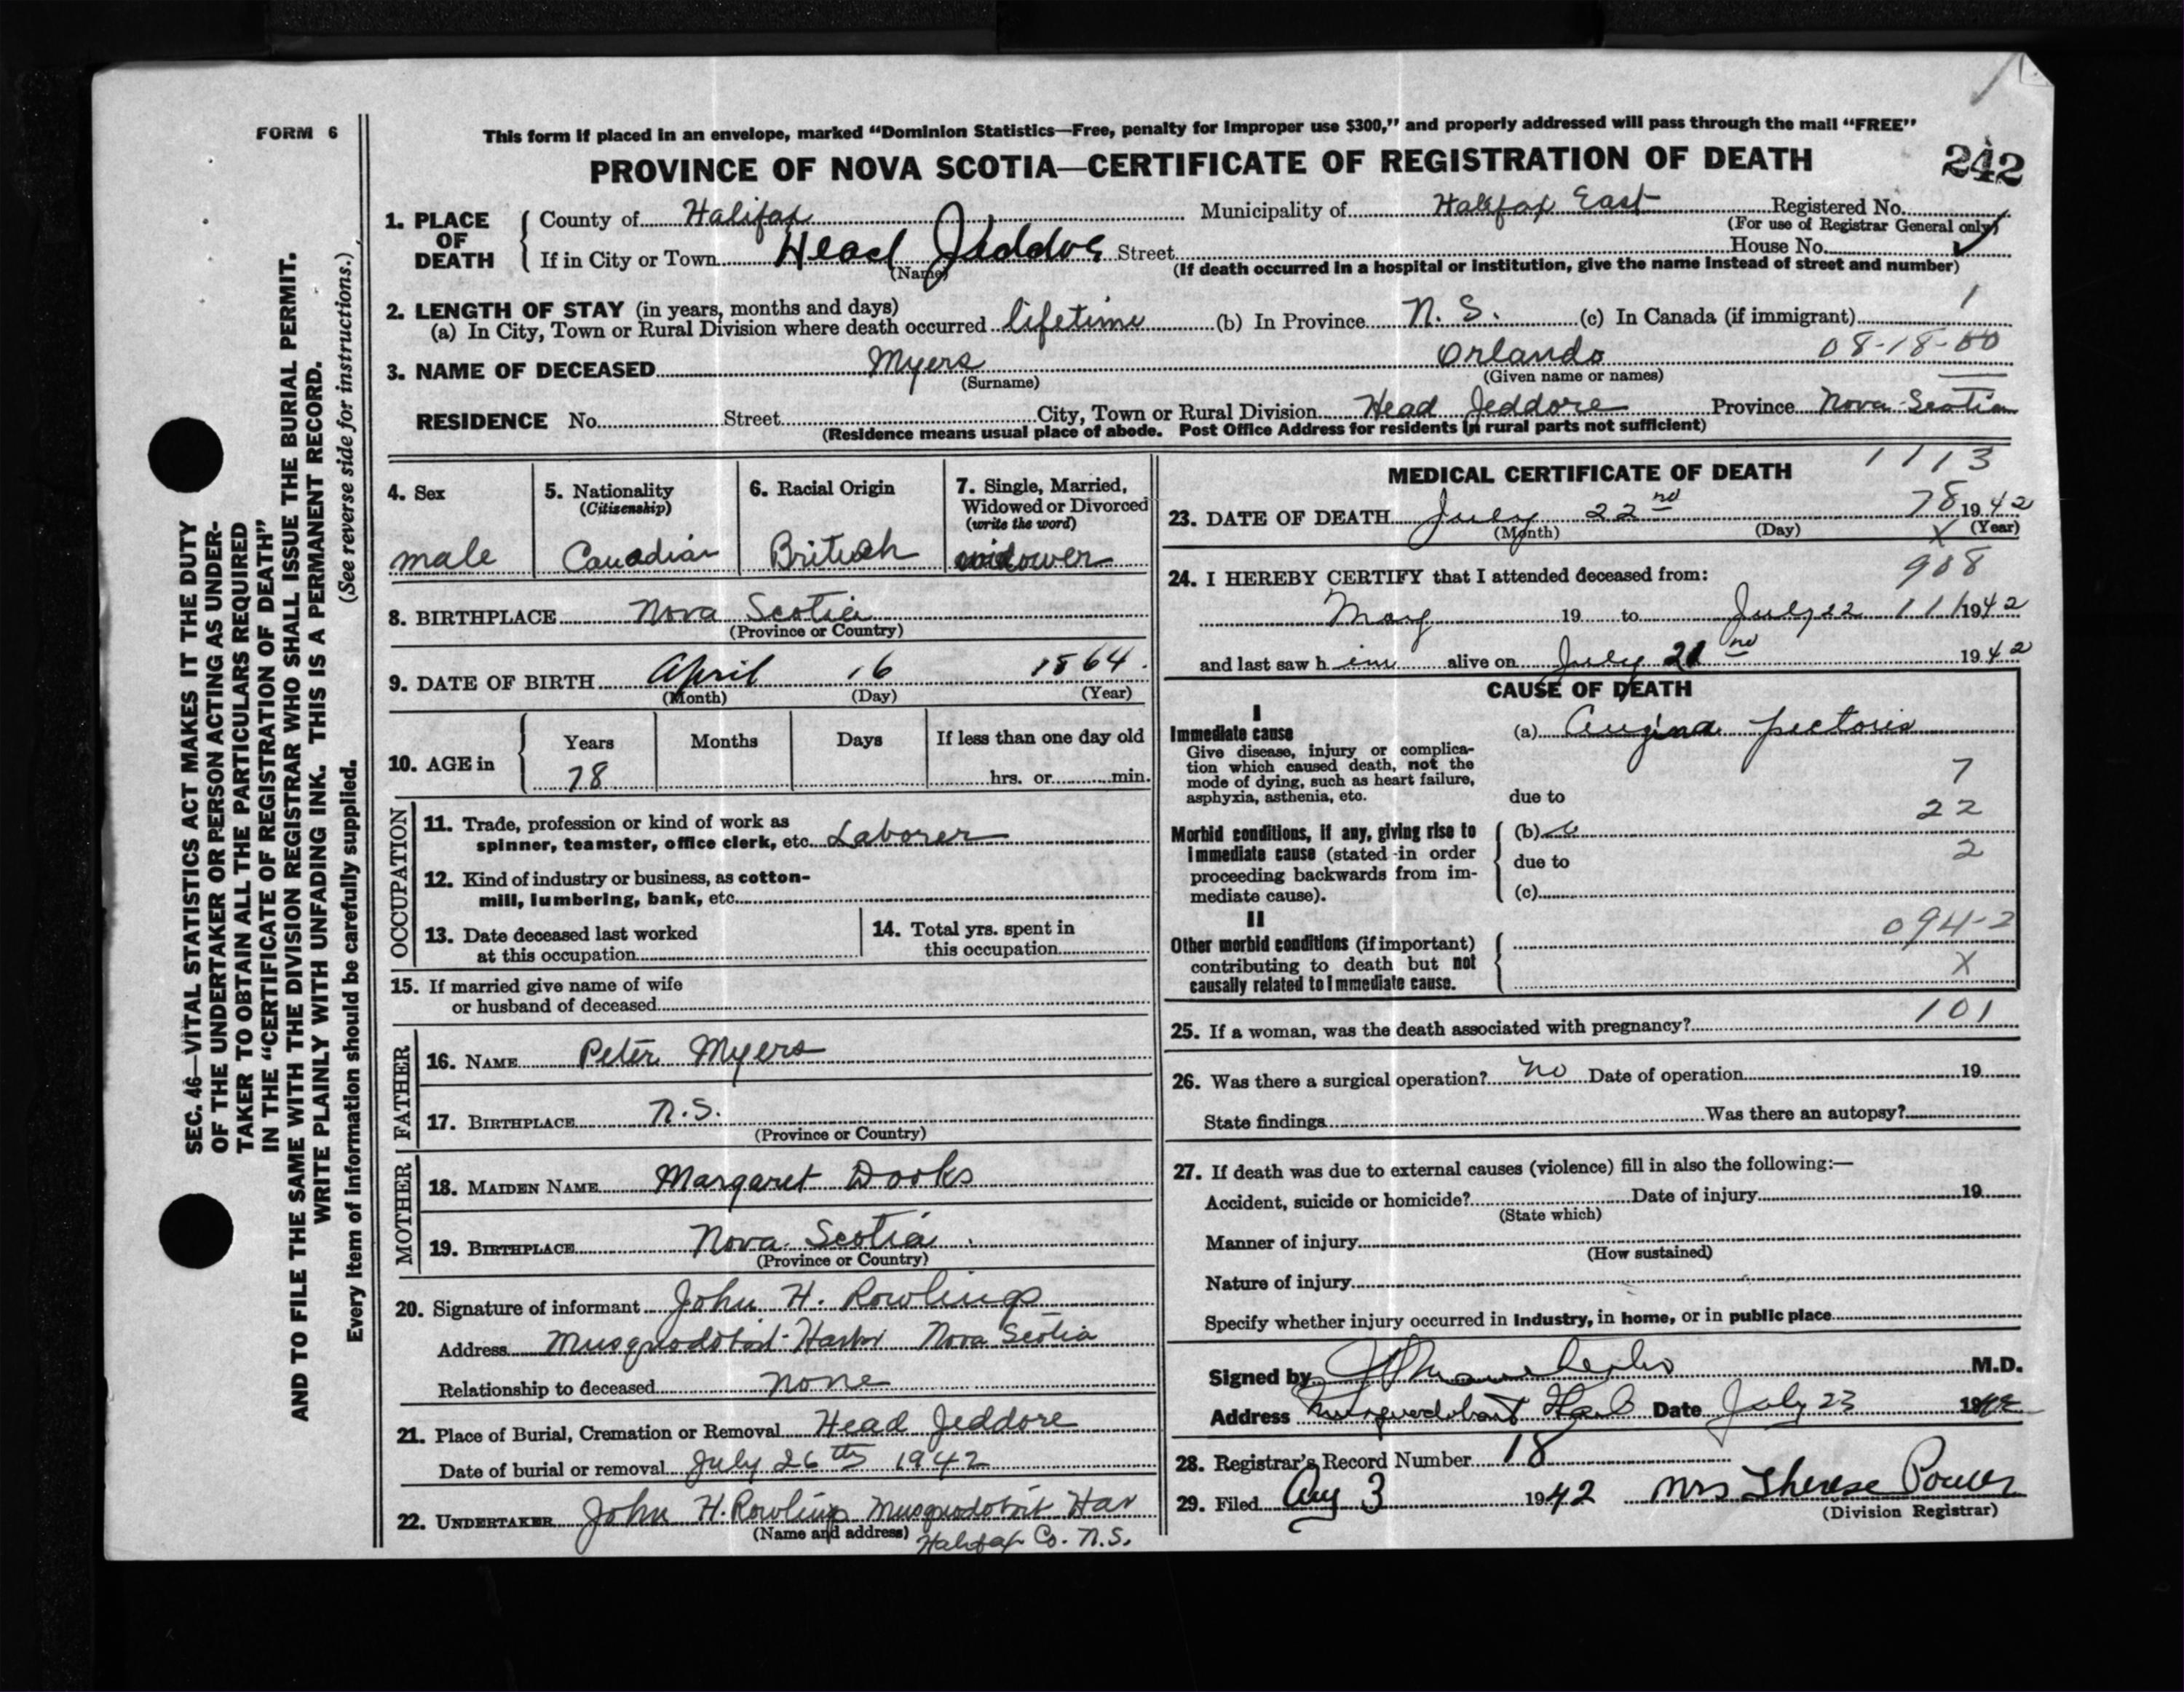 FORM 6
This form if placed in an envelope, marked "Dominion Statistics—Free, penalty for improper use $300," and properly addressed will pass through the mail "FREE"
PROVINCE OF NOVA SCOTIA—CERTIFICATE OF REGISTRATION OF DEATH
242
1. PLACE OF DEATH
County of Halifax Municipality of Halifax East Registered No.
(For use of Registrar General only)
If in City or Town Head Jeddore Street House No.
(Name) (If death occurred in a hospital or institution, give the name instead of street and number)
2. LENGTH OF STAY (in years, months and days)
(a) In City, Town or Rural Division where death occurred lifetime (b) In Province N. S. (c) In Canada (if immigrant) 1
3. NAME OF DECEASED Myers Orlando 08-18-00
(Surname) (Given name or names)
RESIDENCE No. Street City, Town or Rural Division Head Jeddore Province Nova Scotia
(Residence means usual place of abode. Post Office Address for residents in rural parts not sufficient)
4. Sex
male
5. Nationality
(Citizenship)
Canadian
6. Racial Origin
British
7. Single, Married,
Widowed or Divorced
(write the word)
widower
8. BIRTHPLACE Nova Scotia
(Province or Country)
9. DATE OF BIRTH April 16 1864.
(Month) (Day) (Year)
10. AGE in
Years Months Days If less than one day old
78 hrs. or min.
OCCUPATION
11. Trade, profession or kind of work as
spinner, teamster, office clerk, etc. Laborer
12. Kind of industry or business, as cotton-
mill, lumbering, bank, etc.
13. Date deceased last worked
at this occupation
14. Total yrs. spent in
this occupation
15. If married give name of wife
or husband of deceased
FATHER
16. NAME Peter Myers
17. BIRTHPLACE N.S.
(Province or Country)
MOTHER
18. MAIDEN NAME Margaret Dooks
19. BIRTHPLACE Nova Scotia
(Province or Country)
20. Signature of informant John H. Rowlings
Address Musquodoboit Harbor Nova Scotia
Relationship to deceased none
21. Place of Burial, Cremation or Removal Head Jeddore
Date of burial or removal July 26th 1942
22. UNDERTAKER John H. Rowlings Musquodoboit Har
(Name and address) Halifax Co. N.S.
MEDICAL CERTIFICATE OF DEATH 1113
23. DATE OF DEATH July 22nd 78 1942
(Month) (Day) X (Year)
24. I HEREBY CERTIFY that I attended deceased from: 908
May 19 to July 22 111 1942
and last saw h im alive on July 21nd 1942
CAUSE OF DEATH
I
Immediate cause
Give disease, injury or complica-
tion which caused death, not the
mode of dying, such as heart failure,
asphyxia, asthenia, etc.
(a) Angina pectoris
7
due to
22
Morbid conditions, if any, giving rise to
immediate cause (stated in order
proceeding backwards from im-
mediate cause).
(b)
due to 2
(c)
II
Other morbid conditions (if important)
contributing to death but not
causally related to immediate cause.
094-2
X
25. If a woman, was the death associated with pregnancy? 101
26. Was there a surgical operation? no Date of operation 19
State findings Was there an autopsy?
27. If death was due to external causes (violence) fill in also the following:—
Accident, suicide or homicide? Date of injury 19
(State which)
Manner of injury
(How sustained)
Nature of injury
Specify whether injury occurred in industry, in home, or in public place
Signed by M.D.
Address Musquodoboit Harb Date July 23 1942
28. Registrar's Record Number 18
29. Filed Aug 3 1942 Mrs Therese Power
(Division Registrar)
SEC. 46—VITAL STATISTICS ACT MAKES IT THE DUTY
OF THE UNDERTAKER OR PERSON ACTING AS UNDER-
TAKER TO OBTAIN ALL THE PARTICULARS REQUIRED
IN THE "CERTIFICATE OF REGISTRATION OF DEATH"
AND TO FILE THE SAME WITH THE DIVISION REGISTRAR WHO SHALL ISSUE THE BURIAL PERMIT.
WRITE PLAINLY WITH UNFADING INK. THIS IS A PERMANENT RECORD.
Every item of information should be carefully supplied. (See reverse side for instructions.)